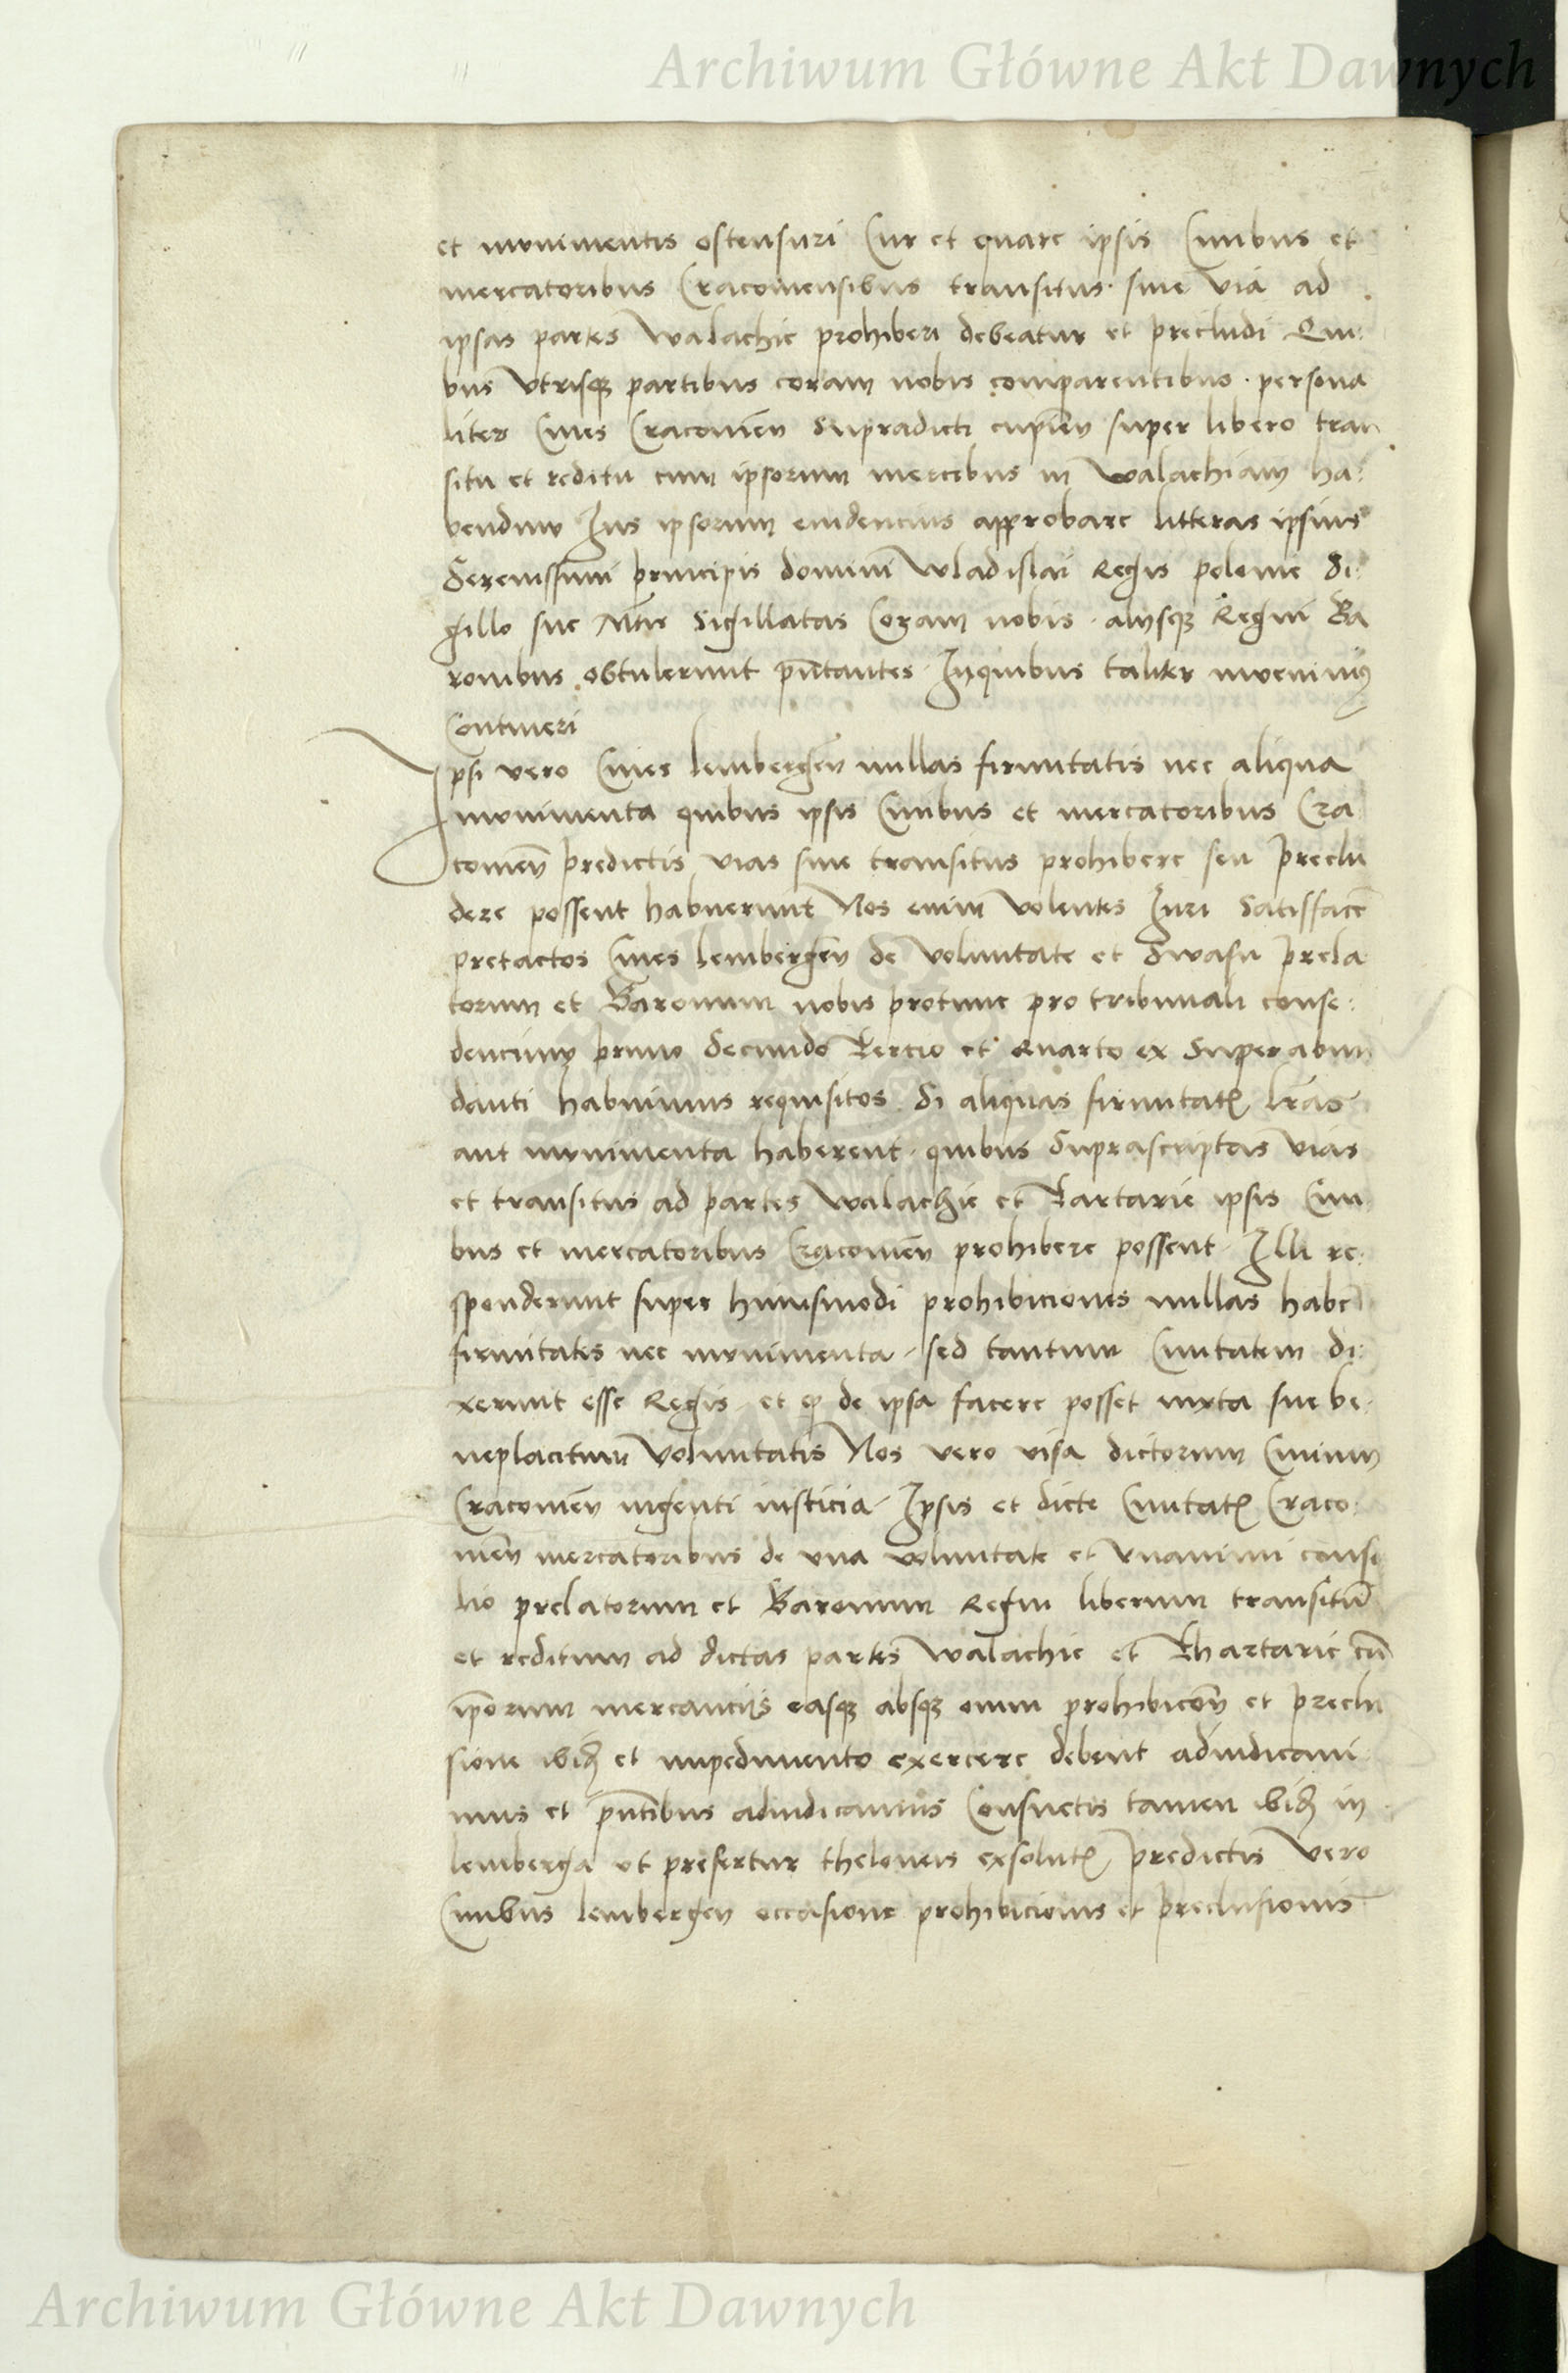 Archiwum Główne Akt Dawnych
et munimentis ostensuri Cur et quare ipsis Ciuibus et
mercatoribus Cracouiensibus transitus siue via ad
ipsas partes Walachie prohiberi debeatur et precludi Qui:
bus vtrisq; partibus coram nobis comparentibus persona
liter Ciues Cracouien̄ Supradicti cupien̄ super libero tran
situ et reditu cum ipsorum mercibus in Walachiam ha:
bendum Jus ipsorum euidencius approbare litteras ipsius
Serenissimi principis domini Wladislai Regis polonie Si:
gillo sue Mtis Sigillatas Coram nobis alijsq; Regni Ba
ronibus obtulerunt pn̄tantes Inquibus taliter inuenimus
Contineri
Ipsi vero Ciues lembergen̄ nullas firmitatis nec aliqua
munimenta quibus ipsis Ciuibus et mercatoribus Cra
couien̄ predictis vias siue transitus prohibere seu preclu
dere possent habuerunt Nos enim volentes Juri Satisfacē
pretactos Ciues lembergen̄ de voluntate et Swasu prela
torum et Baronum nobis protunc pro tribunali conse:
dencium primo Secundo Tercio et Quarto ex Superabun
danti habuimus requisitos Si aliquas firmitatꝭ lr̄as
aut munimenta haberent quibus Suprascriptas vias
et transitus ad partes Walachie et Tartarie ipsis Ciui
bus et mercatoribus Cracouien̄ prohibere possent Illi re:
sponderunt super huiusmodi prohibiciones nullas habē
firmitates nec munimenta sed tantum Ciuitatem di:
xerunt esse Regis et qͦ de ipsa facere posset iuxta sue be:
neplacitum voluntatis Nos vero visa dictorum Ciuium
Cracouien̄ ingenti iusticia Ipsis et dicte Ciuitatꝭ Craco:
uien̄ mercatoribus de vna voluntate et vnanimi consi
lio prelatorum et Baronum Regni liberum transitū
et reditum ad dictas partes Walachie et Thartarie cū
ip̄orum mercancijs easq; absq; omni prohibicōn̄ et preclu
sione ibiꝺ et impedimento exercere debent adiudicaui
mus et pn̄tibus adiudicamus Consuetis tamen ibiꝺ in
lemberga vt prefertur theloneis exsolutꝭ predictis vero
Ciuibus lembergen̄ occasione prohibicionis et preclusionis
Archiwum Główne Akt Dawnych